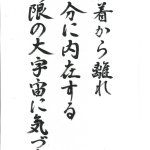 着から離れ
分に内在する
限の大宇宙に気づ